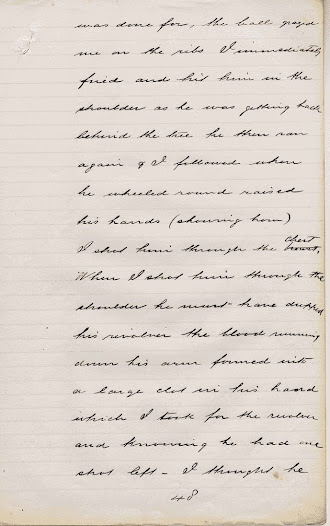 was done for, the ball grazed
me on the ribs I immediately
fried and hit him in the
shoulder as he was getting back
behind the tree he then ran
again & I followed when
he wheeled round raised
his hands (showing how)
I shot him through the chest
When I shot him through the
shoulder he must have dropped
his revolver the blood running
down his arm formed into
a large clot in his hand
which I took for the revolver
and knowing he had one
shot left – I thought he
48